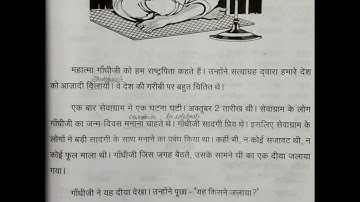 महात्मा गाँधीजी को हम राष्ट्रपिता कहते हैं। उन्होंने सत्याग्रह द्वारा हमारे देश
को आज़ादी दिलायी। वे देश की गरीबी पर बहुत चिंतित थे।
एक बार सेवाग्राम में एक घटना घटी। अक्तूबर 2 तारीख थी। सेवाग्राम के लोग
गाँधीजी का जन्म-दिवस मनाना चाहते थे। गाँधीजी सादगी प्रिय थे। इसलिए सेवाग्राम के
लोगों ने बड़ी सादगी के साथ मनाने का प्रबंध किया था। कहीं भी, न कोई सजावट थी, न
कोई फूल माला थी। गाँधीजी जिस जगह बैठते, उसके सामने घी का एक दीया जलाया
गया।
गाँधीजी ने यह दीया देखा। उन्होंने पूछा - 'यह किसने जलाया?'